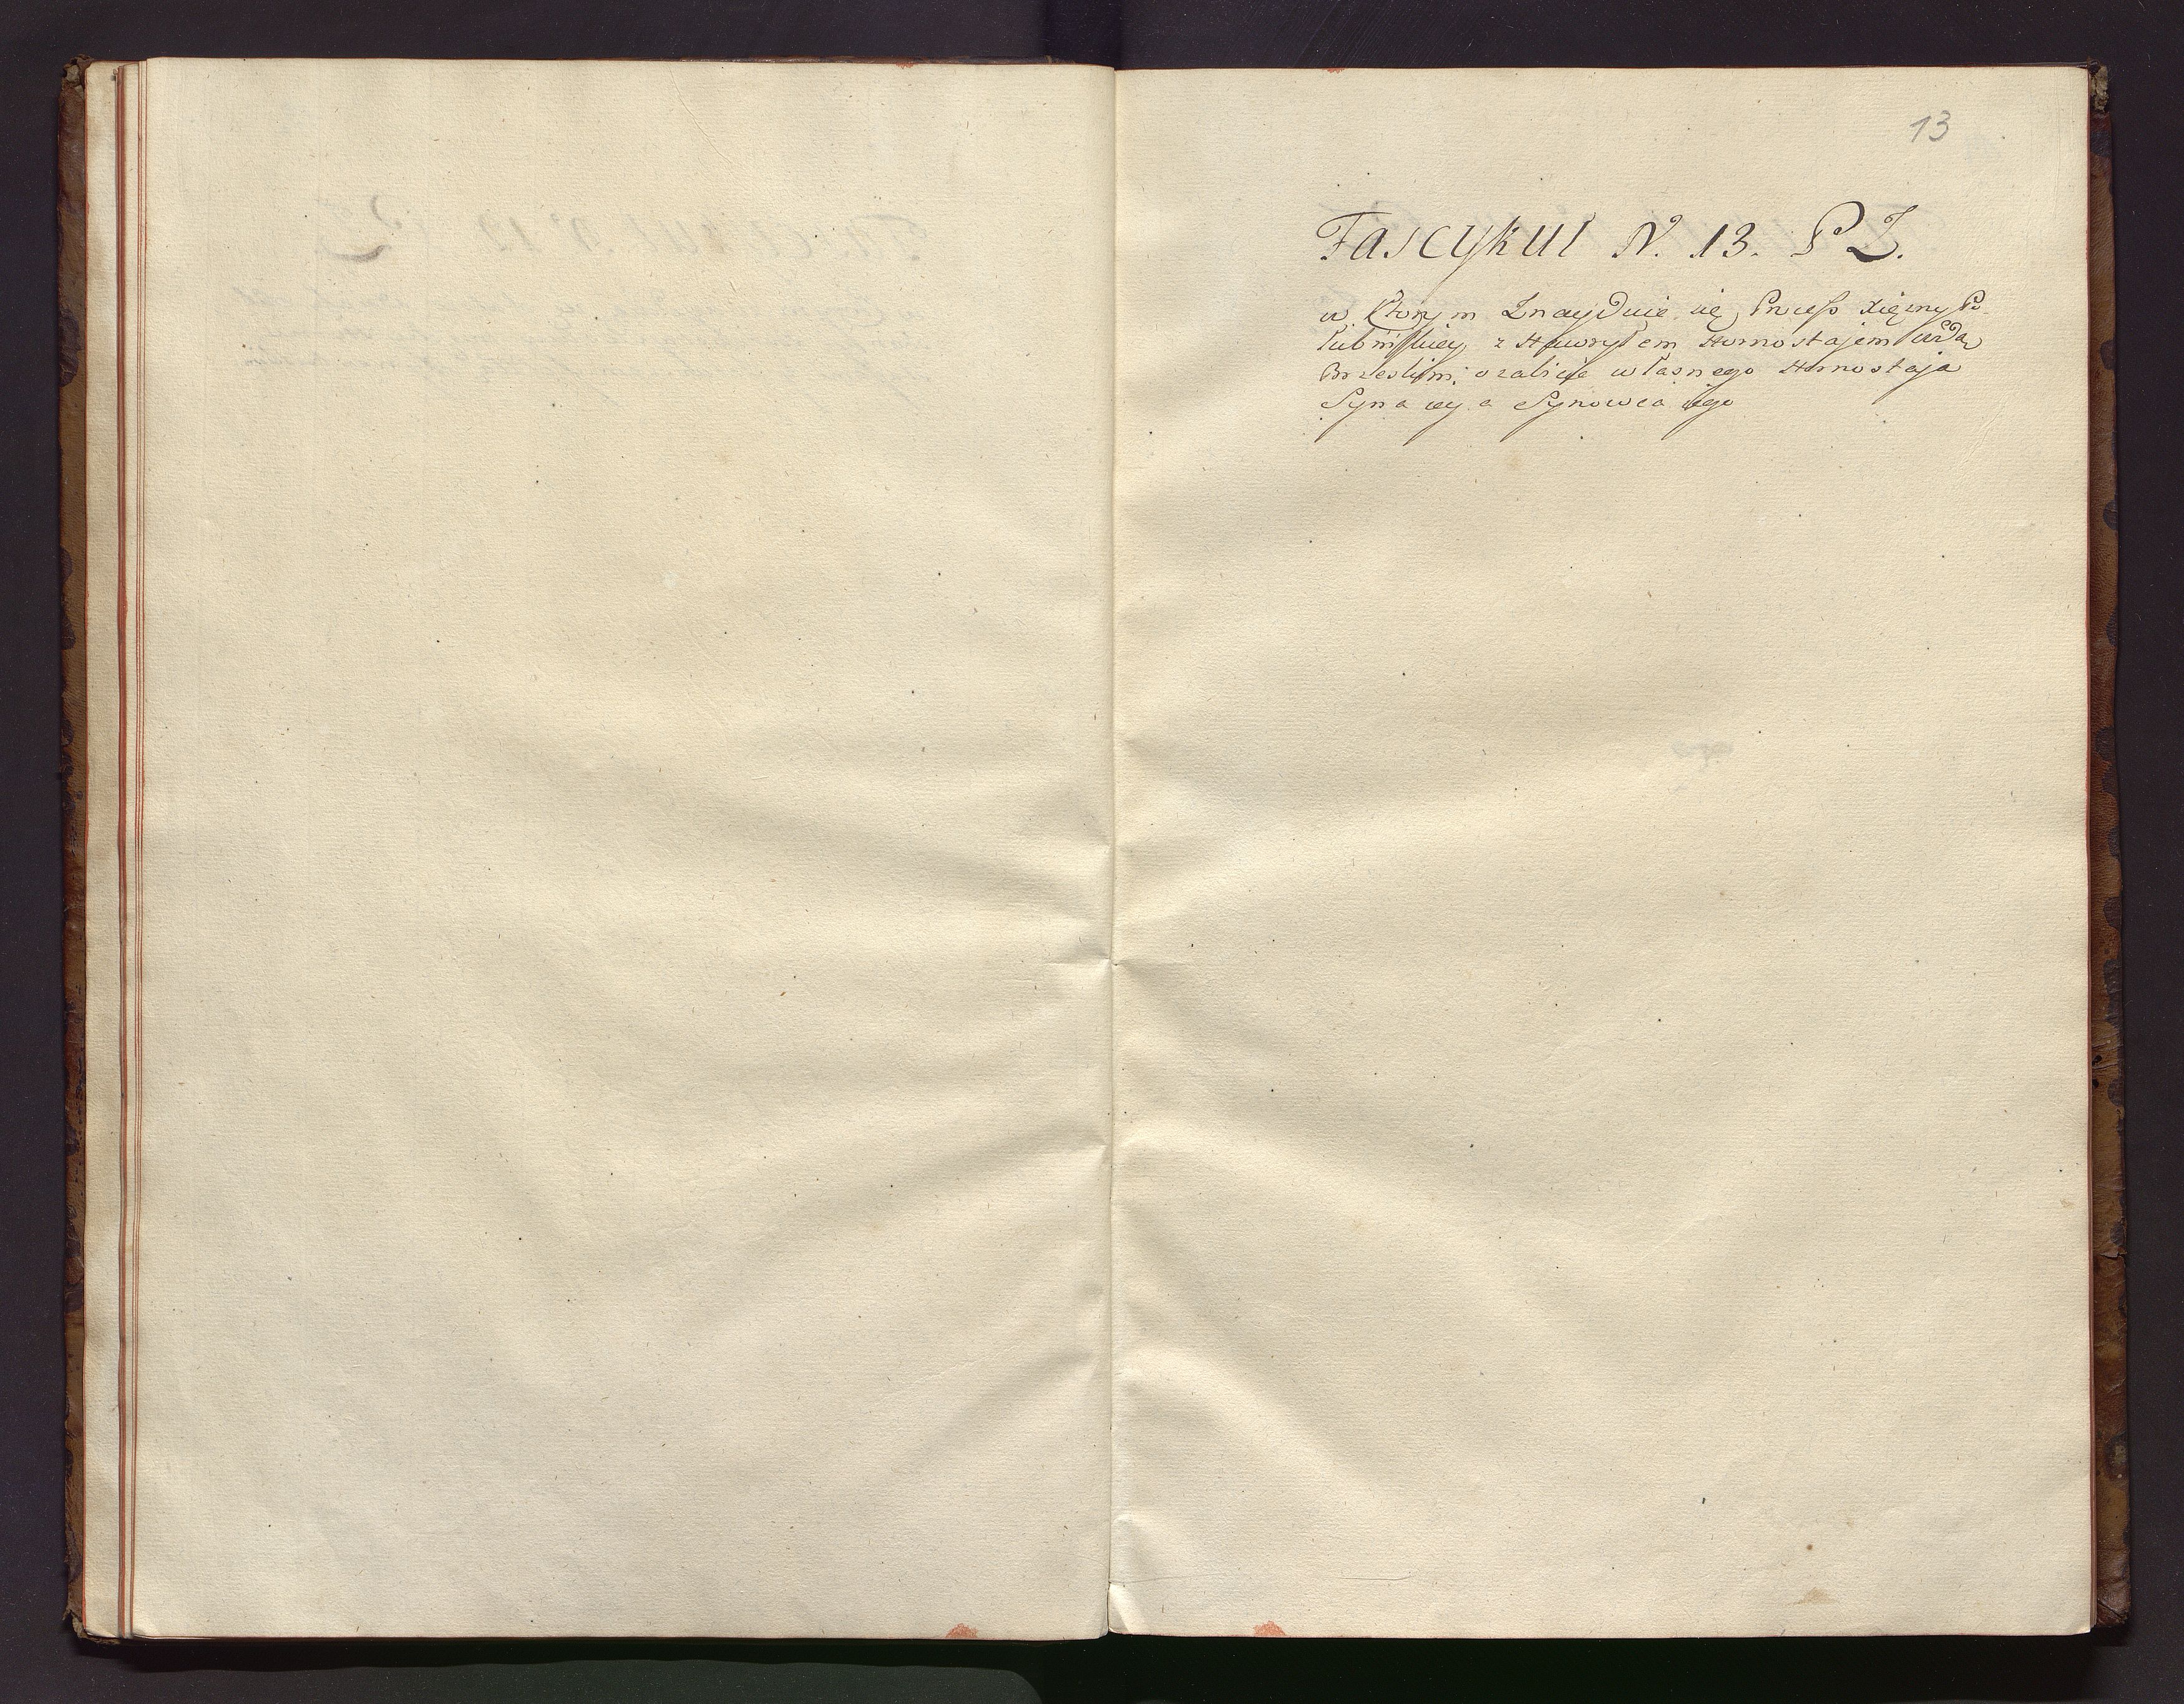 13
Fascykuł N. 13. P Z.
w Ktorym Znayduie się Process Xiężny Po-
łubinskiey z Hawryłem Hornostajem Wdą
Brzeskim o zabicie własnego Hornostaja
Syna iey a Synowca iego